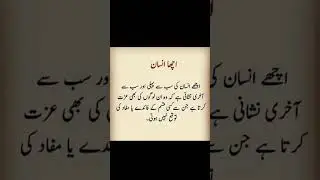 اچھا انسان
اچھے انسان کی سب سے پہلی اور سب سے
آخری نشانی ہے کہ وہ ان لوگوں کی بھی عزت
کرتا ہے جن سے کسی قسم کے فائدے یا مفاد کی
توقع نہیں ہوتی۔